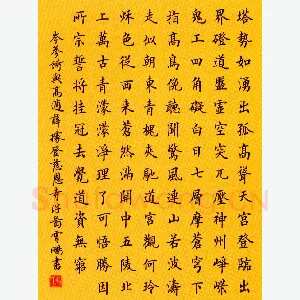 塔勢如湧出孤高聳天宮登臨出
界磴道盤虛空突兀壓神州崢嶸
鬼工四角礙白日七層摩蒼穹下
指高鳥俯聽聞驚風連山若波濤
走似朝東青槐夾馳道宮觀何玲
秌色從西來蒼然滿關中五陵北
上萬古青濛濛淨理了可悟勝因
所宗誓將挂冠去覺道資無窮
岑參詩與高適薛據登慈恩寺浮圖雲鵬書